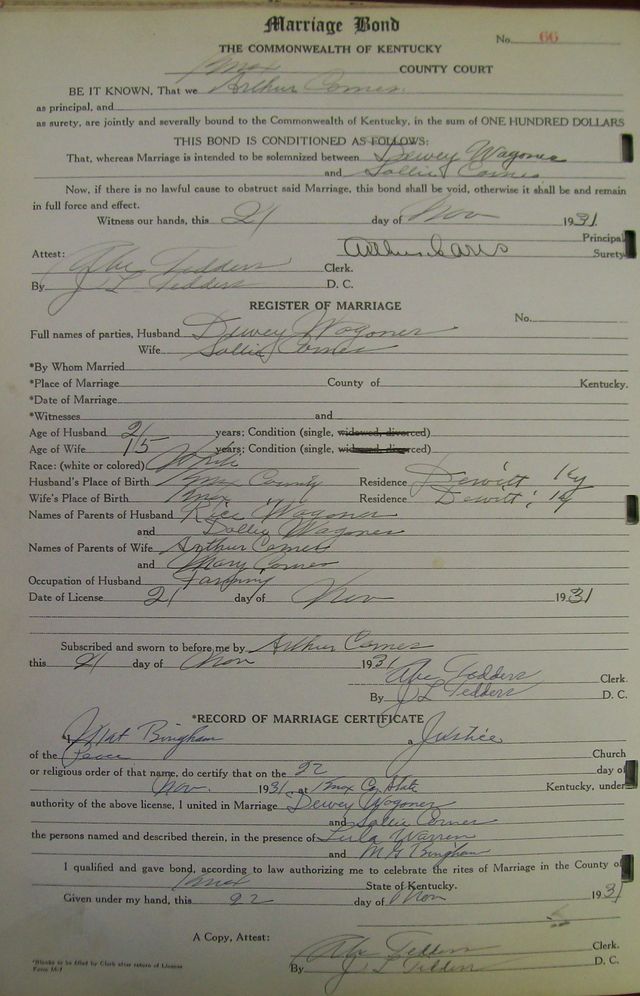 Marriage Bond
No. 66
THE COMMONWEALTH OF KENTUCKY
Knox COUNTY COURT
BE IT KNOWN, That we Arthur Comes
as principal, and
as surety, are jointly and severally bound to the Commonwealth of Kentucky, in the sum of ONE HUNDRED DOLLARS
THIS BOND IS CONDITIONED AS FOLLOWS:
That, whereas Marriage is intended to be solemnized between Dewey Wagoner
and Sallie Comes
Now, if there is no lawful cause to obstruct said Marriage, this bond shall be void, otherwise it shall be and remain
in full force and effect.
Witness our hands, this 21 day of Nov 1931.
Principal
Attest: Surety
Abe Tedders Clerk.
By J L Tedders D. C.
REGISTER OF MARRIAGE
No.
Full names of parties, Husband Dewey Wagoner
Wife Sallie Comes
*By Whom Married
*Place of Marriage County of Kentucky.
*Date of Marriage
*Witnesses and
Age of Husband 21 years; Condition (single, widowed, divorced)
Age of Wife 15 years; Condition (single, widowed, divorced)
Race: (white or colored) White
Husband's Place of Birth Knox County Residence Dewitt Ky
Wife's Place of Birth Knox Residence Dewitt, Ky
Names of Parents of Husband Rice Wagoner
and Dollie Wagoner
Names of Parents of Wife Arthur Comes
and Mary Comes
Occupation of Husband Farming
Date of License 21 day of Nov 1931
Subscribed and sworn to before me by Arthur Comes
this 21 day of Nov 1931
Abe Tedders Clerk.
By J L Tedders D. C.
*RECORD OF MARRIAGE CERTIFICATE
I, Mat Bingham a Justice
of the Peace Church
or religious order of that name, do certify that on the 22 day of
Nov. 1931 at Knox Co, State Kentucky, under
authority of the above license, I united in Marriage Dewey Wagoner
and Sallie Comes
the persons named and described therein, in the presence of Lula Warren
and M G Bingham
I qualified and gave bond, according to law authorizing me to celebrate the rites of Marriage in the County of
Knox State of Kentucky.
Given under my hand, this 22 day of Nov 1931
A Copy, Attest:
Abe Tedders Clerk.
By J L Tedders D. C.
*Blanks to be filled by Clerk after return of License